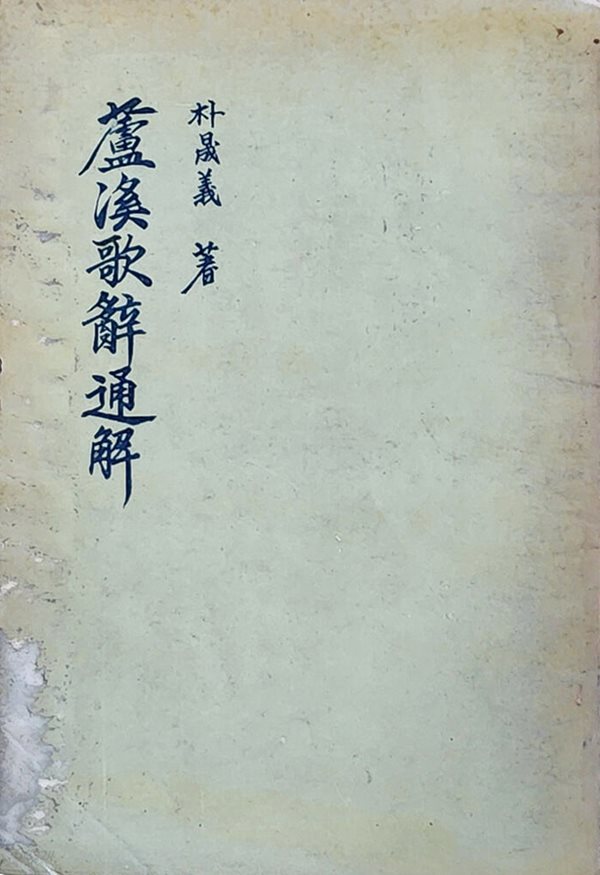 朴晟義 著
蘆溪歌辭通解